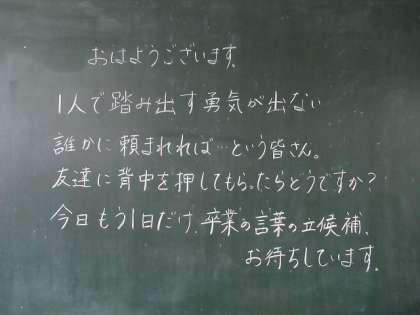 おはようございます。
1人で踏み出す勇気が出ない
誰かに頼まれれば…という皆さん。
友達に背中を押してもらったらどうですか？
今日もう1日だけ、卒業の言葉の立候補、
お待ちしています。